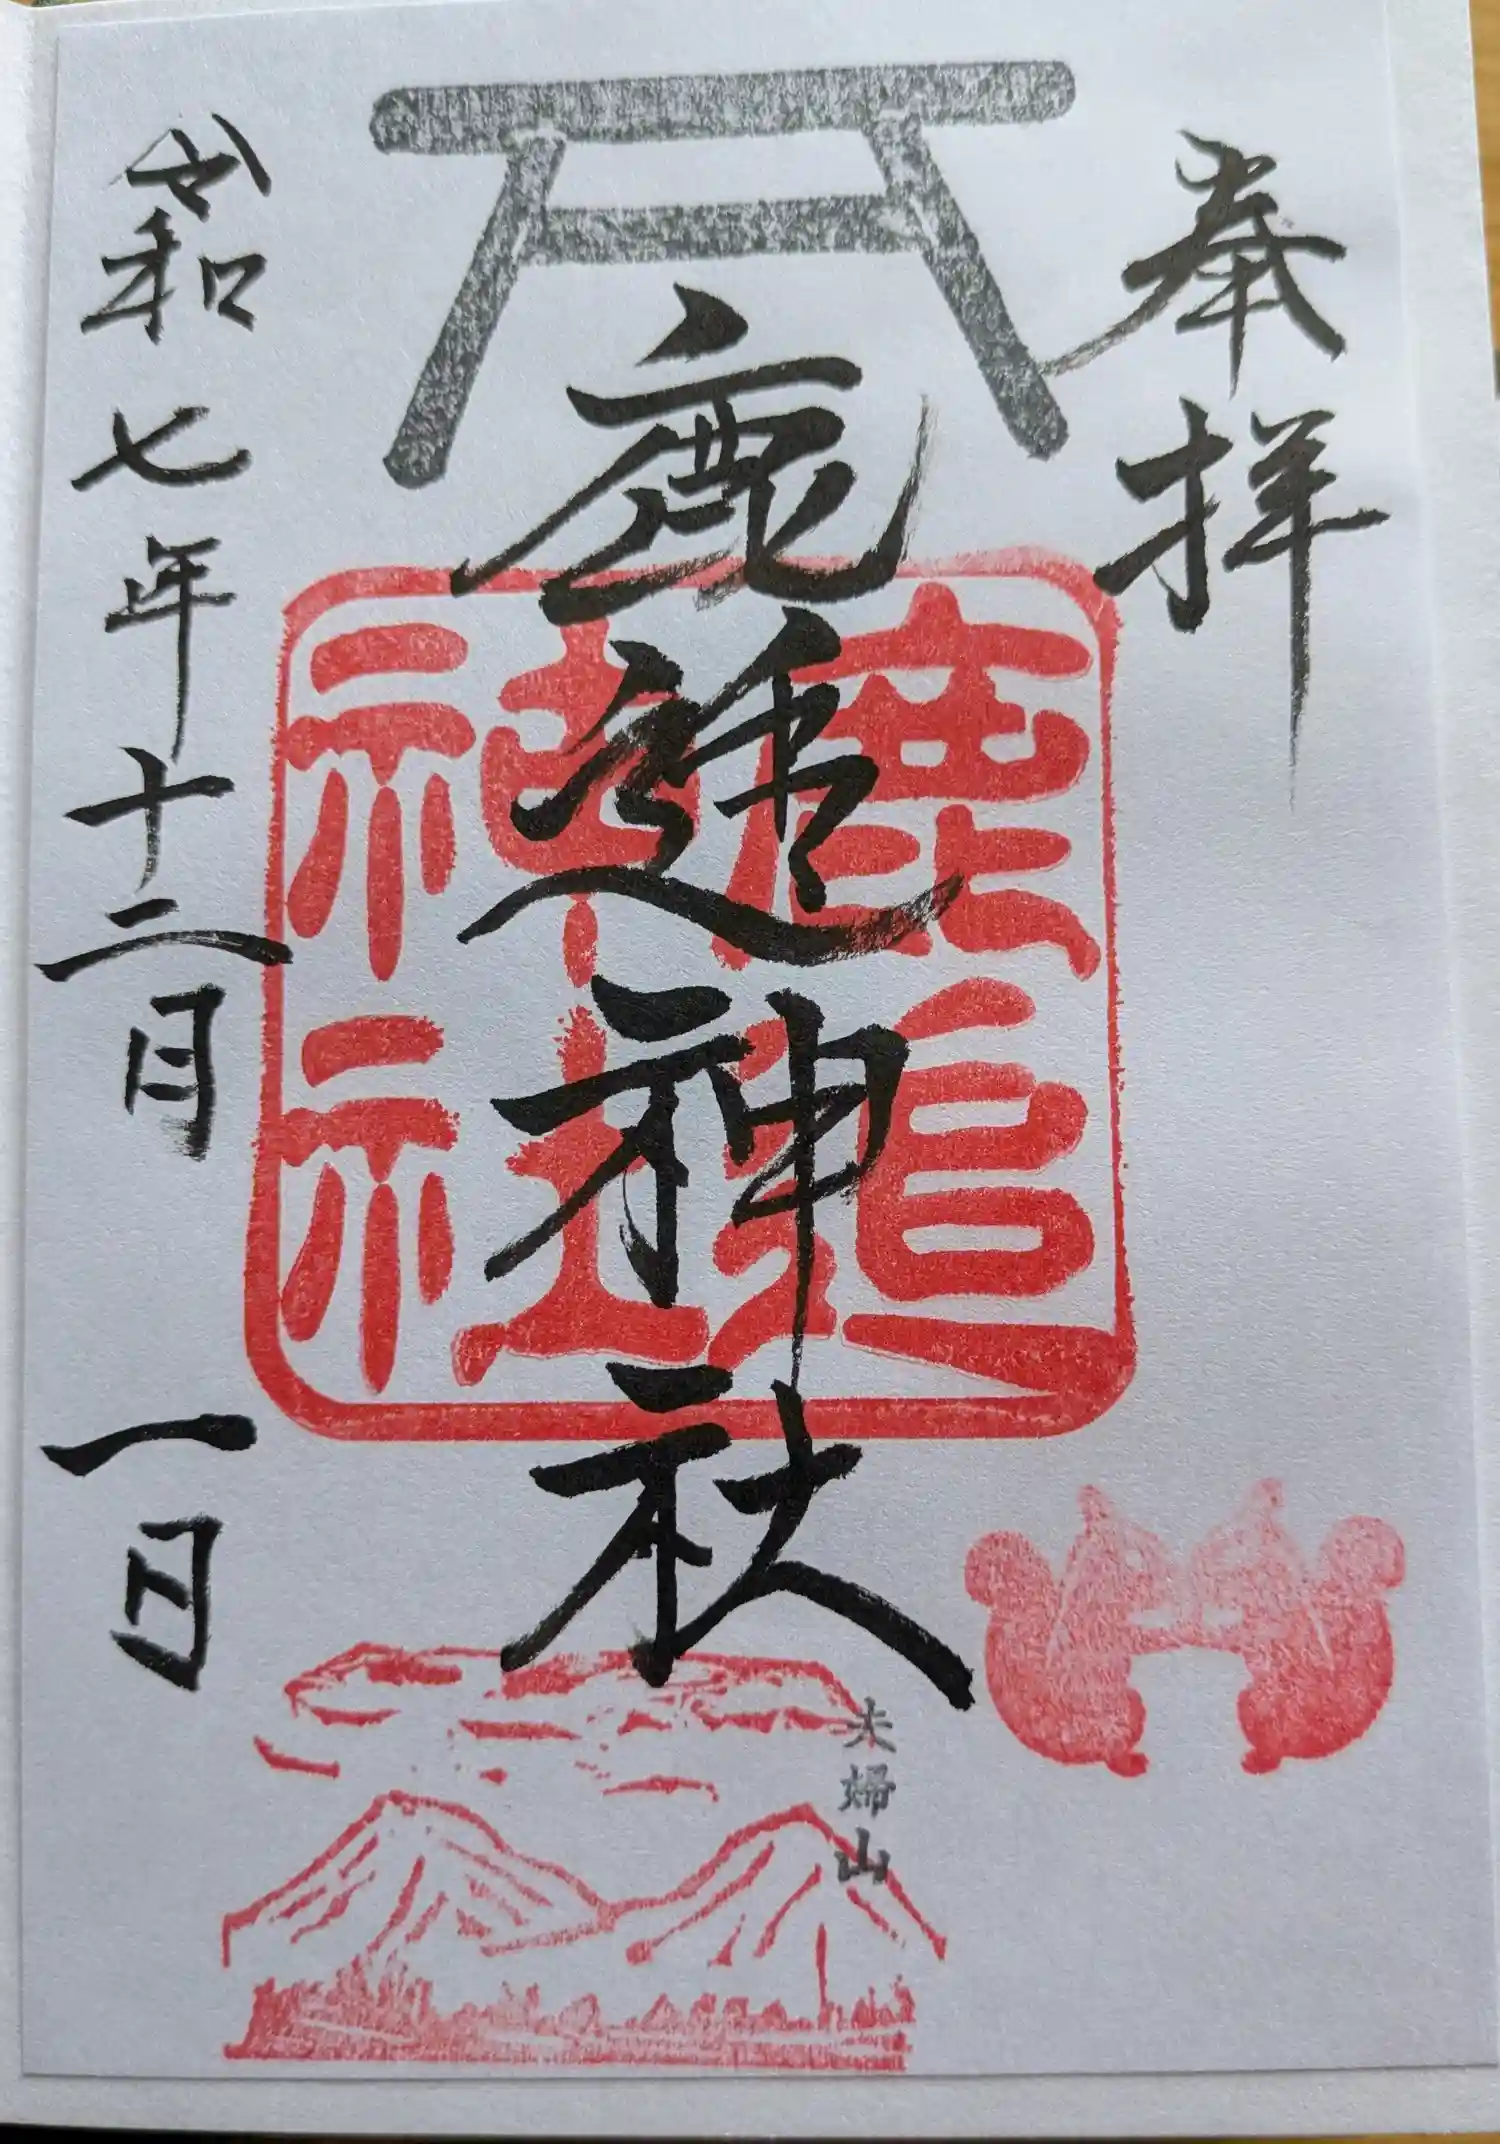 奉拝
鹿追神社
鹿追
神社
令和七年十二月一日
夫婦山